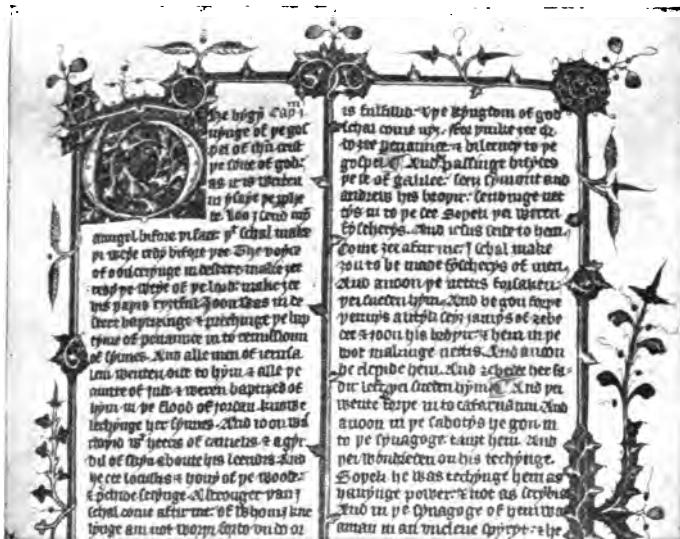 he bygȳ Cap m i
nynge of þe gos
pel of
þe sone of god:
as it is writen
in ysaye þe
te. Loo I send myn
aungel bifore þi face: þt schal make
þi weye redy bifore þee. The voyce
of oon cryinge in desert: make ȝee
redy þe weye of þe lord: make ȝee
his paþis Joon was in de
sert baptisinge & prechinge þe bap
tyme of penaunce in to remissioun
of synnes. And alle men of ierusa
lem wenten out to hym & alle þe
of iude & weren baptized of
hym in þe flood of jordan knowe
lechynge her synnes. And ioon was
wt heeris of camelis & a gyr
dil of skyn aboute his leendis. And
he eet locustis & hony of þe woode.
& prechide seyinge. A strenger þan I
schal come aftir me: of whom I kne
lynge am not worþi to vndo or
is fulfillid. & þe kyngdom of god
schal come nyȝ. for þinke ȝee or
do ȝee penaunce: & bileeuep to þe
gospel. And passinge bisydes
þe se of galilee: seeȝ symont and
andrew his broþir. sendynge net
tys in to þe see Soþeli þei weren
fyscherys. And iesus seide to hem
come ȝee aftir me: I schal make
ȝou to be made fyscherys of men.
And anoon þe nettis forsaken:
þei sueden hym. And he gon forþe
þennys a lityl: seiȝ jamys of zebe
dee & ioon his broþir: & hem in þe
boot makinge nettis. And anoon
he clepide hem. And zebedee her fa
dir left þei sueden hym. And þei
wente forþe in to cafarnaum. And
anoon in þe sabotys he gon in
to þe synagoge: tauȝt hem. And
þei wondreden on his techynge.
Soþeli he was techynge hem as
hauynge power: & not as scrybis
And in þe synagoge of hem was
a man in an vnclene spyryt: & he